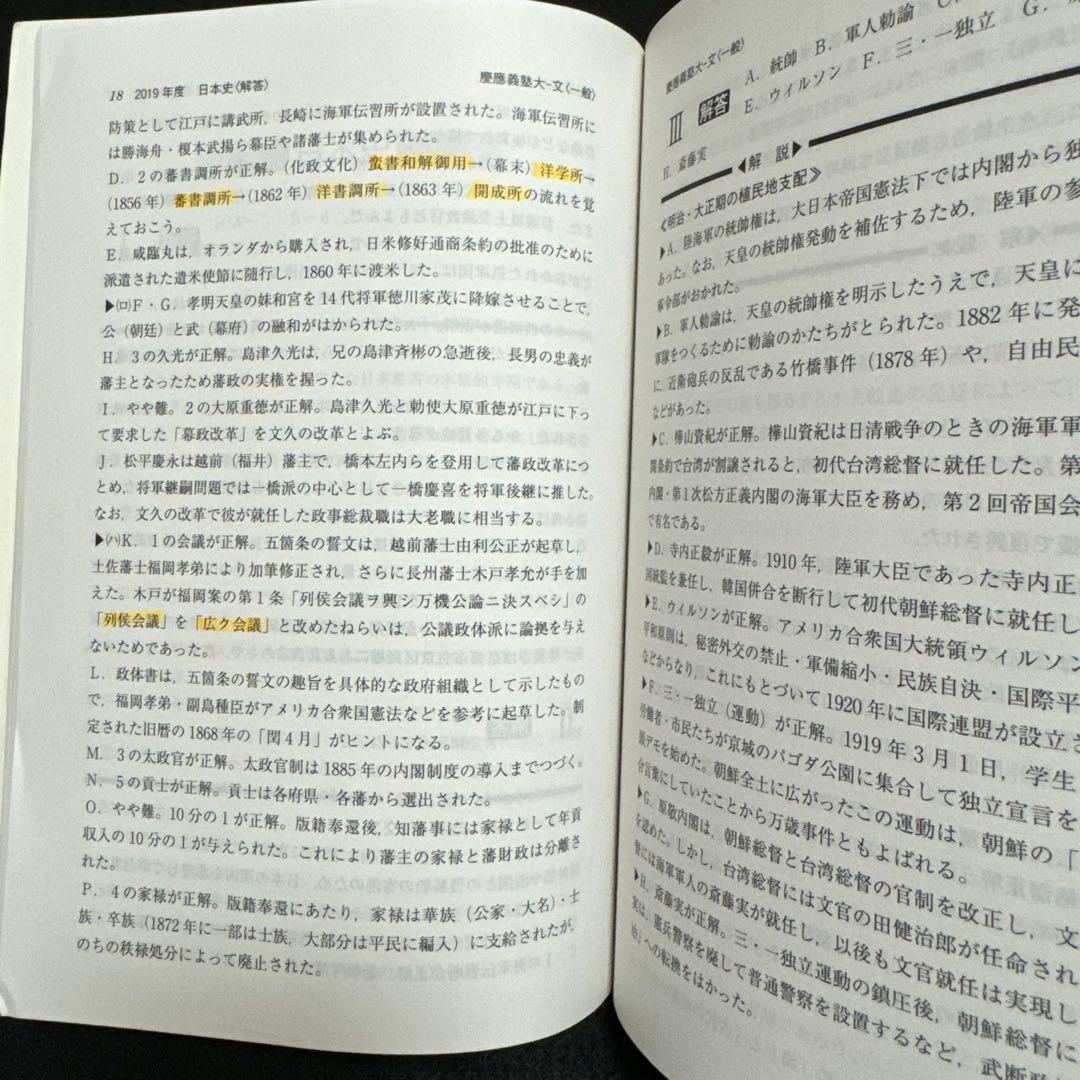 18 2019年度 日本史〈解答〉 慶應義塾大-文〈一般〉
防策として江戸に講武所，長崎に海軍伝習所が設置された。海軍伝習所に
は勝海舟・榎本武揚ら幕臣や諸藩士が集められた。
D．2の蕃書調所が正解。(化政文化) 蛮書和解御用→(幕末) 洋学所→
(1856年) 蕃書調所→(1862年) 洋書調所→(1863年) 開成所の流れを覚
えておこう。
E．咸臨丸は，オランダから購入され，日米修好通商条約の批准のために
派遣された遣米使節に随行し，1860年に渡米した。
▶(ロ)F・G．孝明天皇の妹和宮を14代将軍徳川家茂に降嫁させることで，
公（朝廷）と武（幕府）の融和がはかられた。
H．3の久光が正解。島津久光は，兄の島津斉彬の急逝後，長男の忠義が
藩主となったため藩政の実権を握った。
I．やや難。2の大原重徳が正解。島津久光と勅使大原重徳が江戸に下っ
て要求した「幕政改革」を文久の改革とよぶ。
J．松平慶永は越前（福井）藩主で，橋本左内らを登用して藩政改革につ
とめ，将軍継嗣問題では一橋派の中心として一橋慶喜を将軍後継に推した。
なお，文久の改革で彼が就任した政事総裁職は大老職に相当する。
▶(ハ)K．1の会議が正解。五箇条の誓文は，越前藩士由利公正が起草し，
土佐藩士福岡孝弟により加筆修正され，さらに長州藩士木戸孝允が手を加
えた。木戸が福岡案の第1条「列侯会議ヲ興シ万機公論ニ決スベシ」の
「列侯会議」を「広ク会議」と改めたねらいは，公議政体派に論拠を与え
ないためであった。
L．政体書は，五箇条の誓文の趣旨を具体的な政府組織として示したもの
で，福岡孝弟・副島種臣がアメリカ合衆国憲法などを参考に起草した。制
定された旧暦の1868年の「閏4月」がヒントになる。
M．3の太政官が正解。太政官制は1885年の内閣制度の導入までつづく。
N．5の貢士が正解。貢士は各府県・各藩から選出された。
O．やや難。10分の1が正解。版籍奉還後，知藩事には家禄として年貢
収入の10分の1が与えられた。これにより藩主の家禄と藩財政は分離さ
れた。
P．4の家禄が正解。版籍奉還にあたり，家禄は華族（公家・大名）・士
族・卒族（1872年に一部は士族，大部分は平民に編入）に支給されたが，
のちの秩禄処分によって廃止された。
慶應義塾大-文〈一般〉
Ⅲ 解答 A．統帥 B．軍人勅諭
E．ウィルソン F．三・一独立 G．
H．斎藤実
◀解 説▶
≪明治・大正期の植民地支配≫
▶A．陸海軍の統帥権は，大日本帝国憲法下では内閣から独
あった。なお，天皇の統帥権発動を補佐するため，陸軍の参
軍令部がおかれた。
▶B．軍人勅諭は，天皇の統帥権を明示したうえで，天皇に
軍隊をつくるために勅諭のかたちがとられた。1882年に発
に，近衛砲兵の反乱である竹橋事件（1878年）や，自由民
などがあった。
▶C．樺山資紀が正解。樺山資紀は日清戦争のときの海軍軍
関条約で台湾が割譲されると，初代台湾総督に就任した。第
内閣・第1次松方正義内閣の海軍大臣を務め，第2回帝国会
で有名である。
▶D．寺内正毅が正解。1910年，陸軍大臣であった寺内正
国統監を兼任し，韓国併合を断行して初代朝鮮総督に就任し
▶E．ウィルソンが正解。アメリカ合衆国大統領ウィルソン
平和原則は，秘密外交の禁止・軍備縮小・民族自決・国際平
などからなり，これにもとづいて1920年に国際連盟が設立さ
▶F．三・一独立（運動）が正解。1919年3月1日，学生・
労働者・市民たちが京城のパゴダ公園に集合して独立宣言を
頭デモを始めた。朝鮮全土に広がったこの運動は，朝鮮の「
合言葉にしていたことから万歳事件ともよばれる。
▶G．原敬内閣は，朝鮮総督と台湾総督の官制を改正し，文
を認めた。しかし，台湾総督には文官の田健治郎が任命され
督には海軍軍人の斎藤実が就任し，以後も文官就任は実現し
▶H．斎藤実が正解。三・一独立運動の鎮圧後，朝鮮総督に
実は，憲兵警察を廃して普通警察を設置するなど，武断政
治」への転換をはかった。